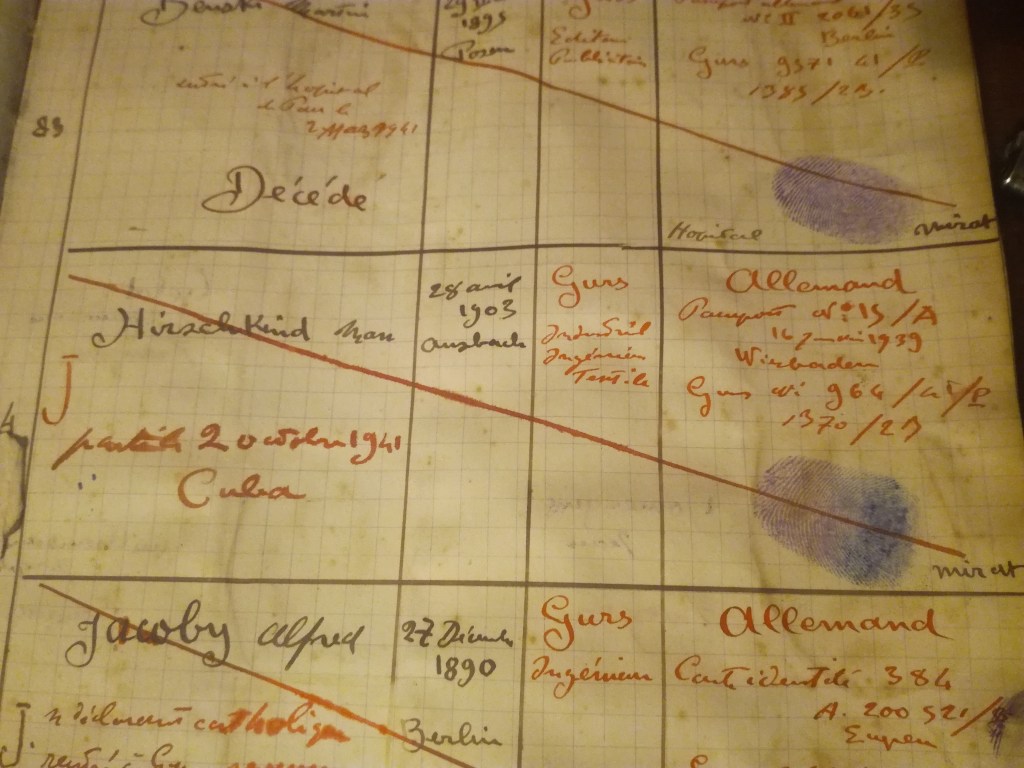 Martin
1895
Posen
Editeur
Publicitaire
Nº II 2061/35
Berlin
Gurs 9571 41/P
1385/2B.
l'hopital
de Pau le
2 Mars 1941
83
Décédé
Hopital
Mirat
Hirschkind Max
28 avril
1903
Gurs
Industriel
Ingénieur
Textile
Allemand
Passeport Nº 15/A
1939
Wiesbaden
Gurs
1370/2B
J
parti le 2 octobre 1941
Cuba
Mirat
Jacoby Alfred
27 Décembre
1890
Berlin
Gurs
Ingénieur
Allemand
Carte identité 384
A. 200 521
Eupen
J.
catholique